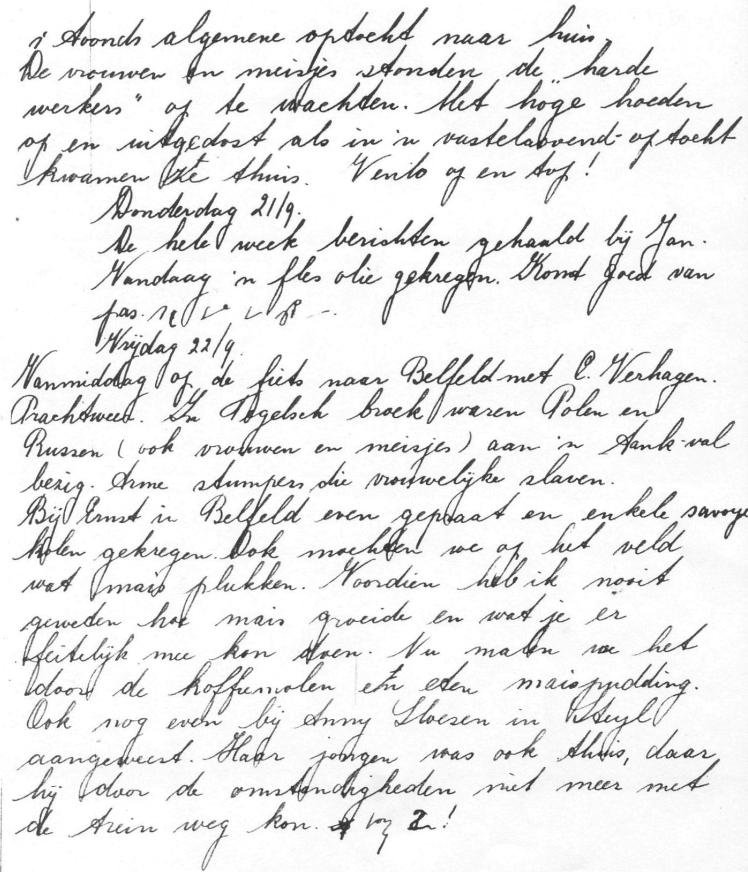 's Avonds algemene optocht naar huis.
De vrouwen en meisjes stonden de "harde
werkers" op te wachten. Met hoge hoeden
op en uitgedost als in 'n vastelaovend-optocht
kwamen ze thuis. Venlo op en top!
Donderdag 21/9.
De hele week berichten gehaald bij Jan.
Vandaag 'n fles olie gekregen. Komt goed van
pas.
Vrijdag 22/9.
Vanmiddag op de fiets naar Belfeld met C. Verhagen.
Prachtweer. In Tegelsch broek waren Polen en
Russen (ook vrouwen en meisjes) aan 'n tank-val
bezig. Arme stumpers die vrouwelijke slaven.
Bij Ernst in Belfeld even gepraat en enkele savoye
kolen gekregen. Ook mochten we op het veld
wat mais plukken. Voordien heb ik nooit
geweten hoe mais groeide en wat je er
feitelijk mee kon doen. Nu malen we het
door de koffiemolen en eten maispudding.
Ook nog even bij Anny in Steyl
aangeweest. Haar jongen was ook thuis, daar
hij door de omstandigheden niet meer met
de trein weg kon.